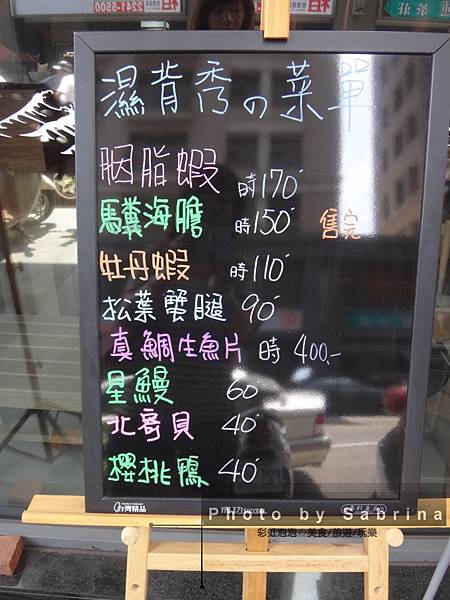 2241-5500
濕背秀の菜單
胭脂蝦 時170
馬糞海膽 時150 售完
牡丹蝦 時110
松葉蟹腿 90
真鯛生魚片 時 400.-
星鰻 60
北寄貝 40
櫻桃鴨 40
台灣精品
Photo by Sabrina
彩虹泡泡の美食/旅遊/玩樂